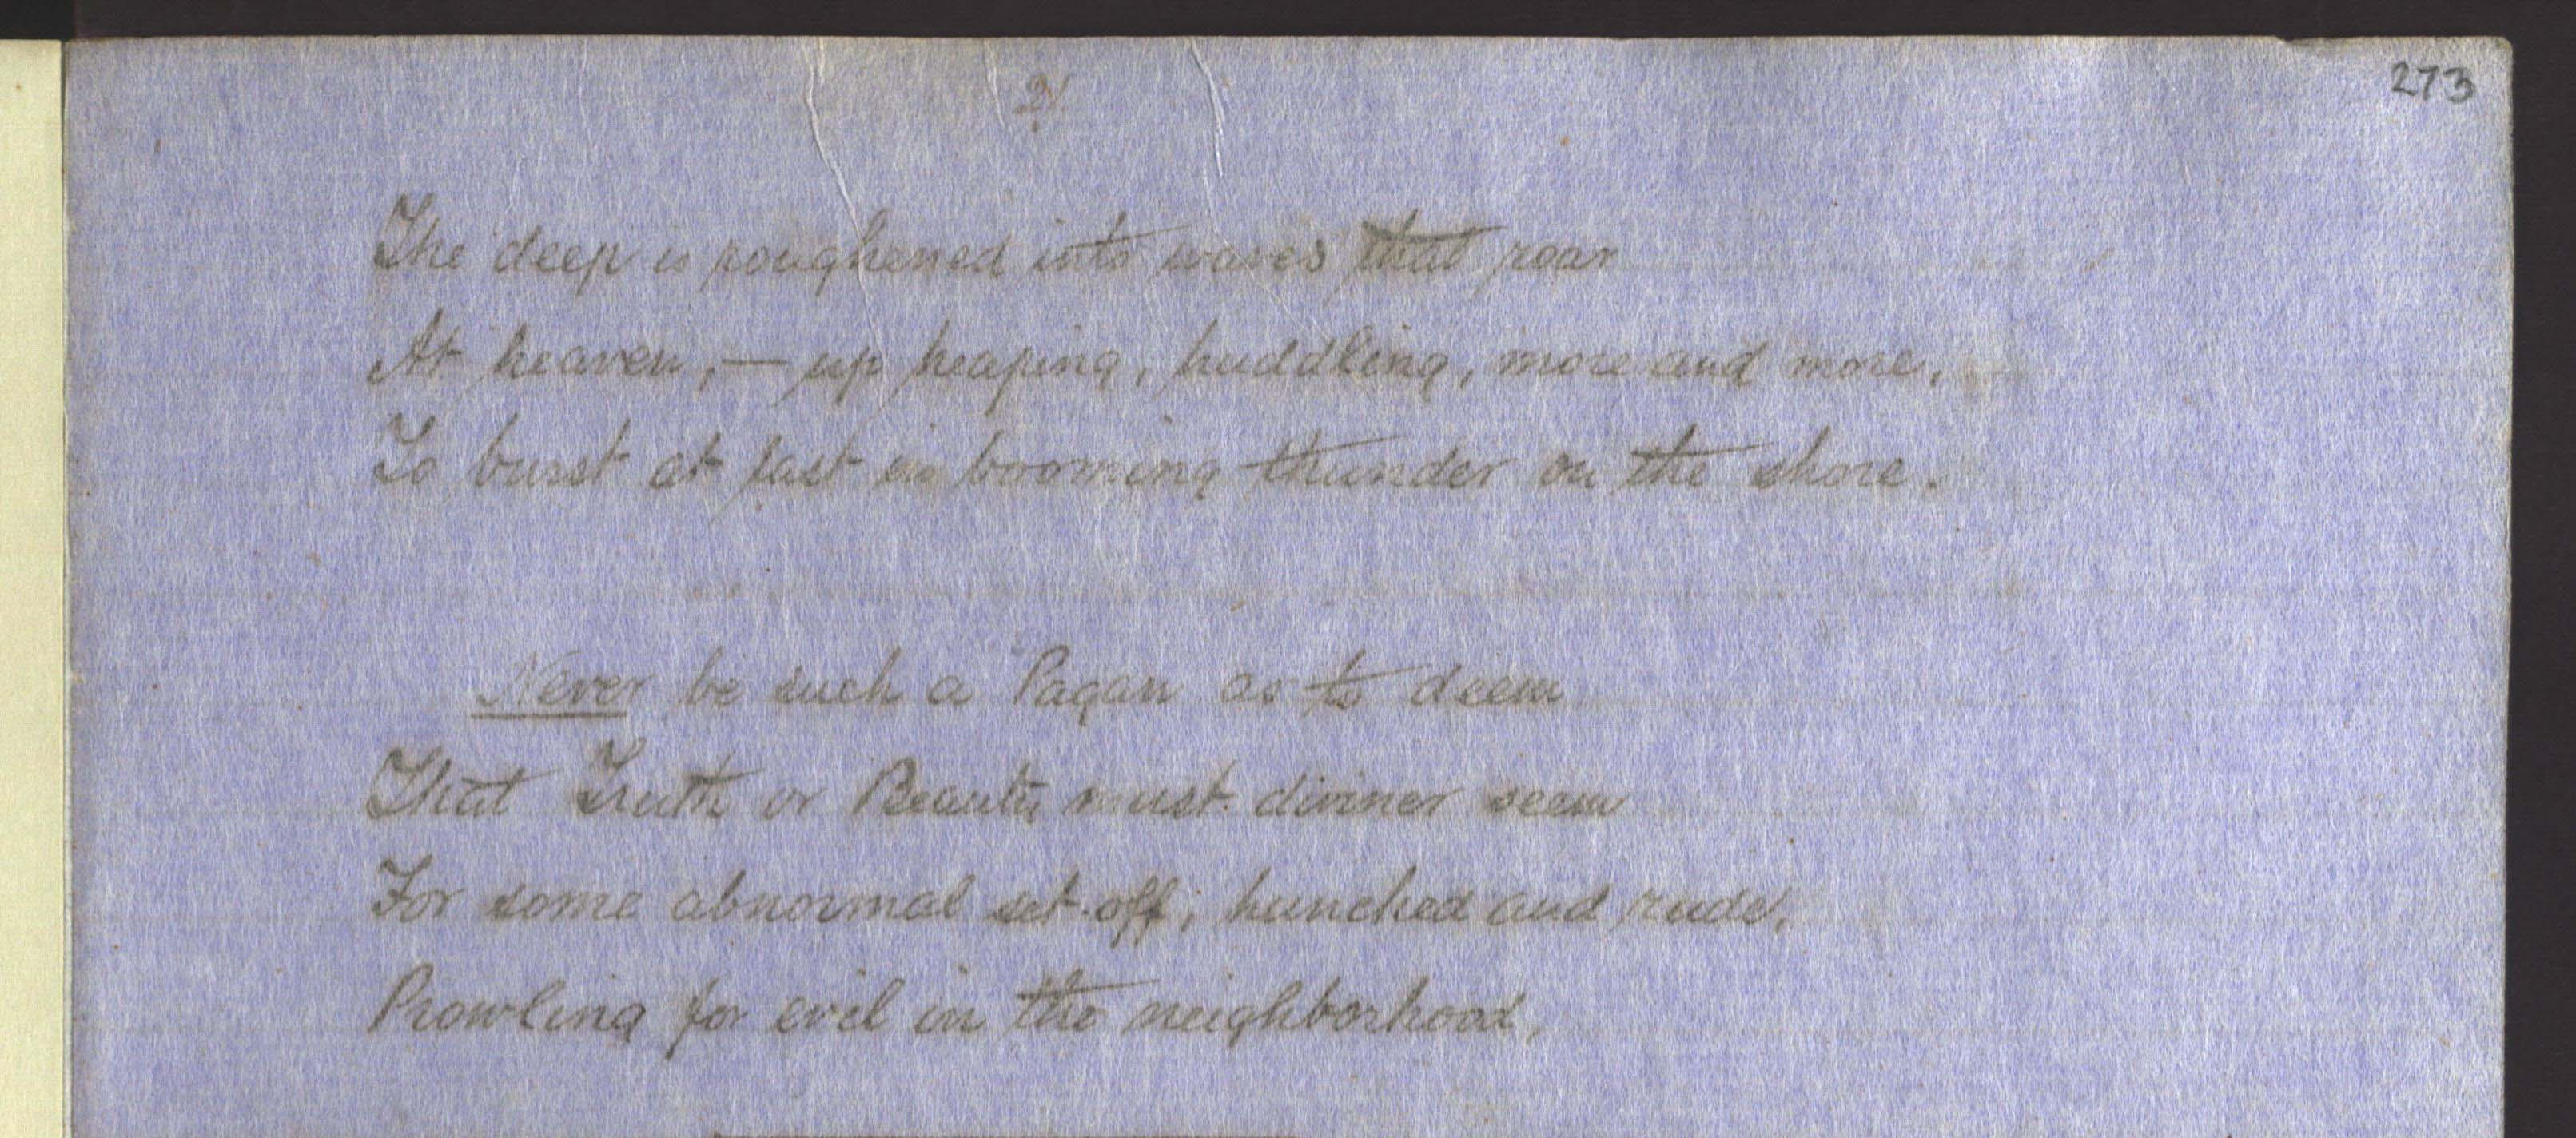 273
The deep is roughened into waves that roar
At heaven, — up heaping, huddling, more and more,
To burst at last in booming thunder on the shore.
Never be such a Pagan as to deem
That Truth or Beauty must diviner seem
For some abnormal set-off, hunched and rude,
Prowling for evil in the neighborhood,